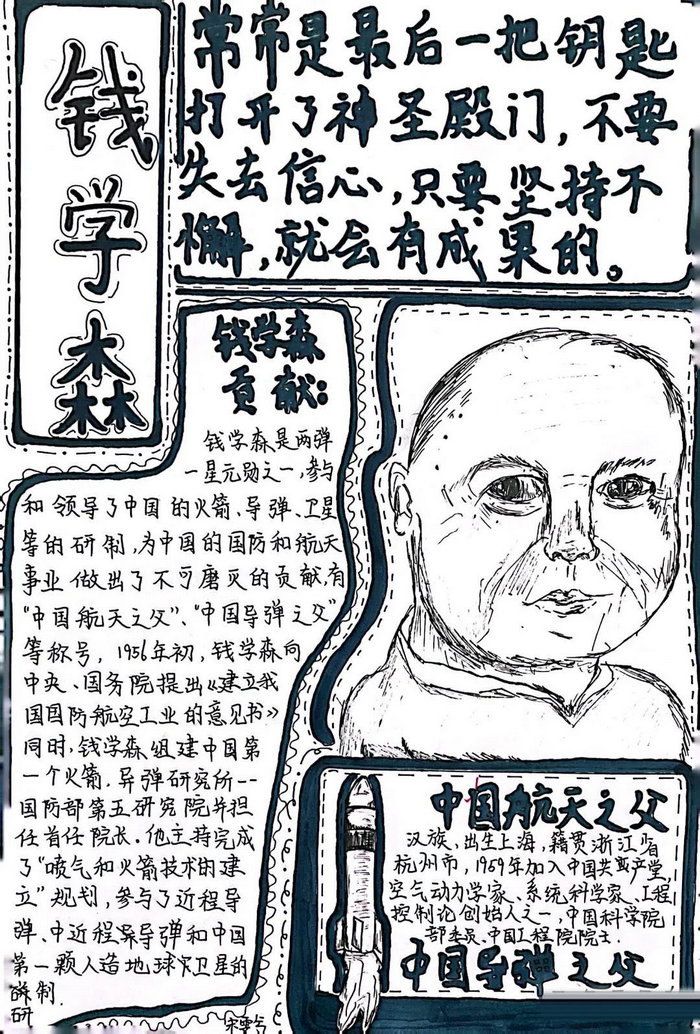 钱学森
常常是最后一把钥匙
打开了神圣殿门，不要
失去信心，只要坚持不
懈，就会有成果的。
钱学森
贡献：
钱学森是两弹
一星元勋之一，参与
和领导了中国的火箭、导弹、卫星
等的研制，为中国的国防和航天
事业做出了不可磨灭的贡献，有
“中国航天之父”、“中国导弹之父”
等称号，1956年初，钱学森向
中央、国务院提出《建立我
国国防航空工业的意见书》
同时，钱学森组建中国第
一个火箭、导弹研究所--
国防部第五研究院并担
任首任院长。他主持完成
了“喷气和火箭技术的建
立”规划，参与了近程导
弹、中近程导弹和中国
第一颗人造地球卫星的
研制.
中国航天之父
汉族、出生上海，籍贯浙江省
杭州市，1959年加入中国共产党，
空气动力学家、系统科学家、工程
控制论创始人之一，中国科学院
部委员、中国工程院院士.
中国导弹之父